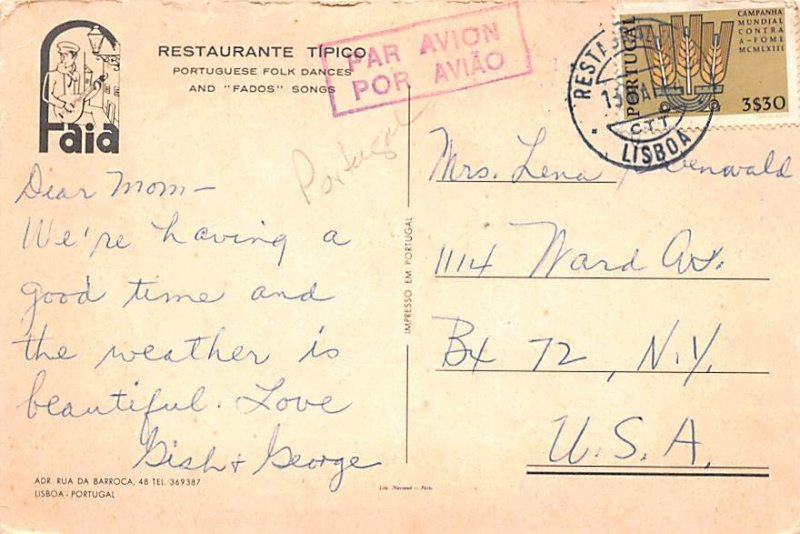 Faia
RESTAURANTE TÍPICO
PORTUGUESE FOLK DANCES
AND "FADOS" SONGS
PAR AVION
POR AVIÃO
PORTUGAL
CAMPANHA
MUNDIAL
CONTRA
A-FOME
MCMLXIII
3$30
C.T.T
LISBOA
Portugal
Dear Mom-
We're having a
good time and
the weather is
beautiful. Love
Gish + George
IMPRESSO EM PORTUGAL
Mrs. Lena
1114 Ward Av.
Bx 72, N.Y.
U.S.A.
ADR. RUA DA BARROCA, 48 TEL. 369387
LISBOA - PORTUGAL